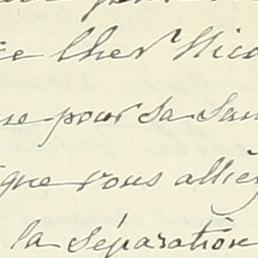 ce Cher Nico
ne pour sa san
que vous allie
la séparation